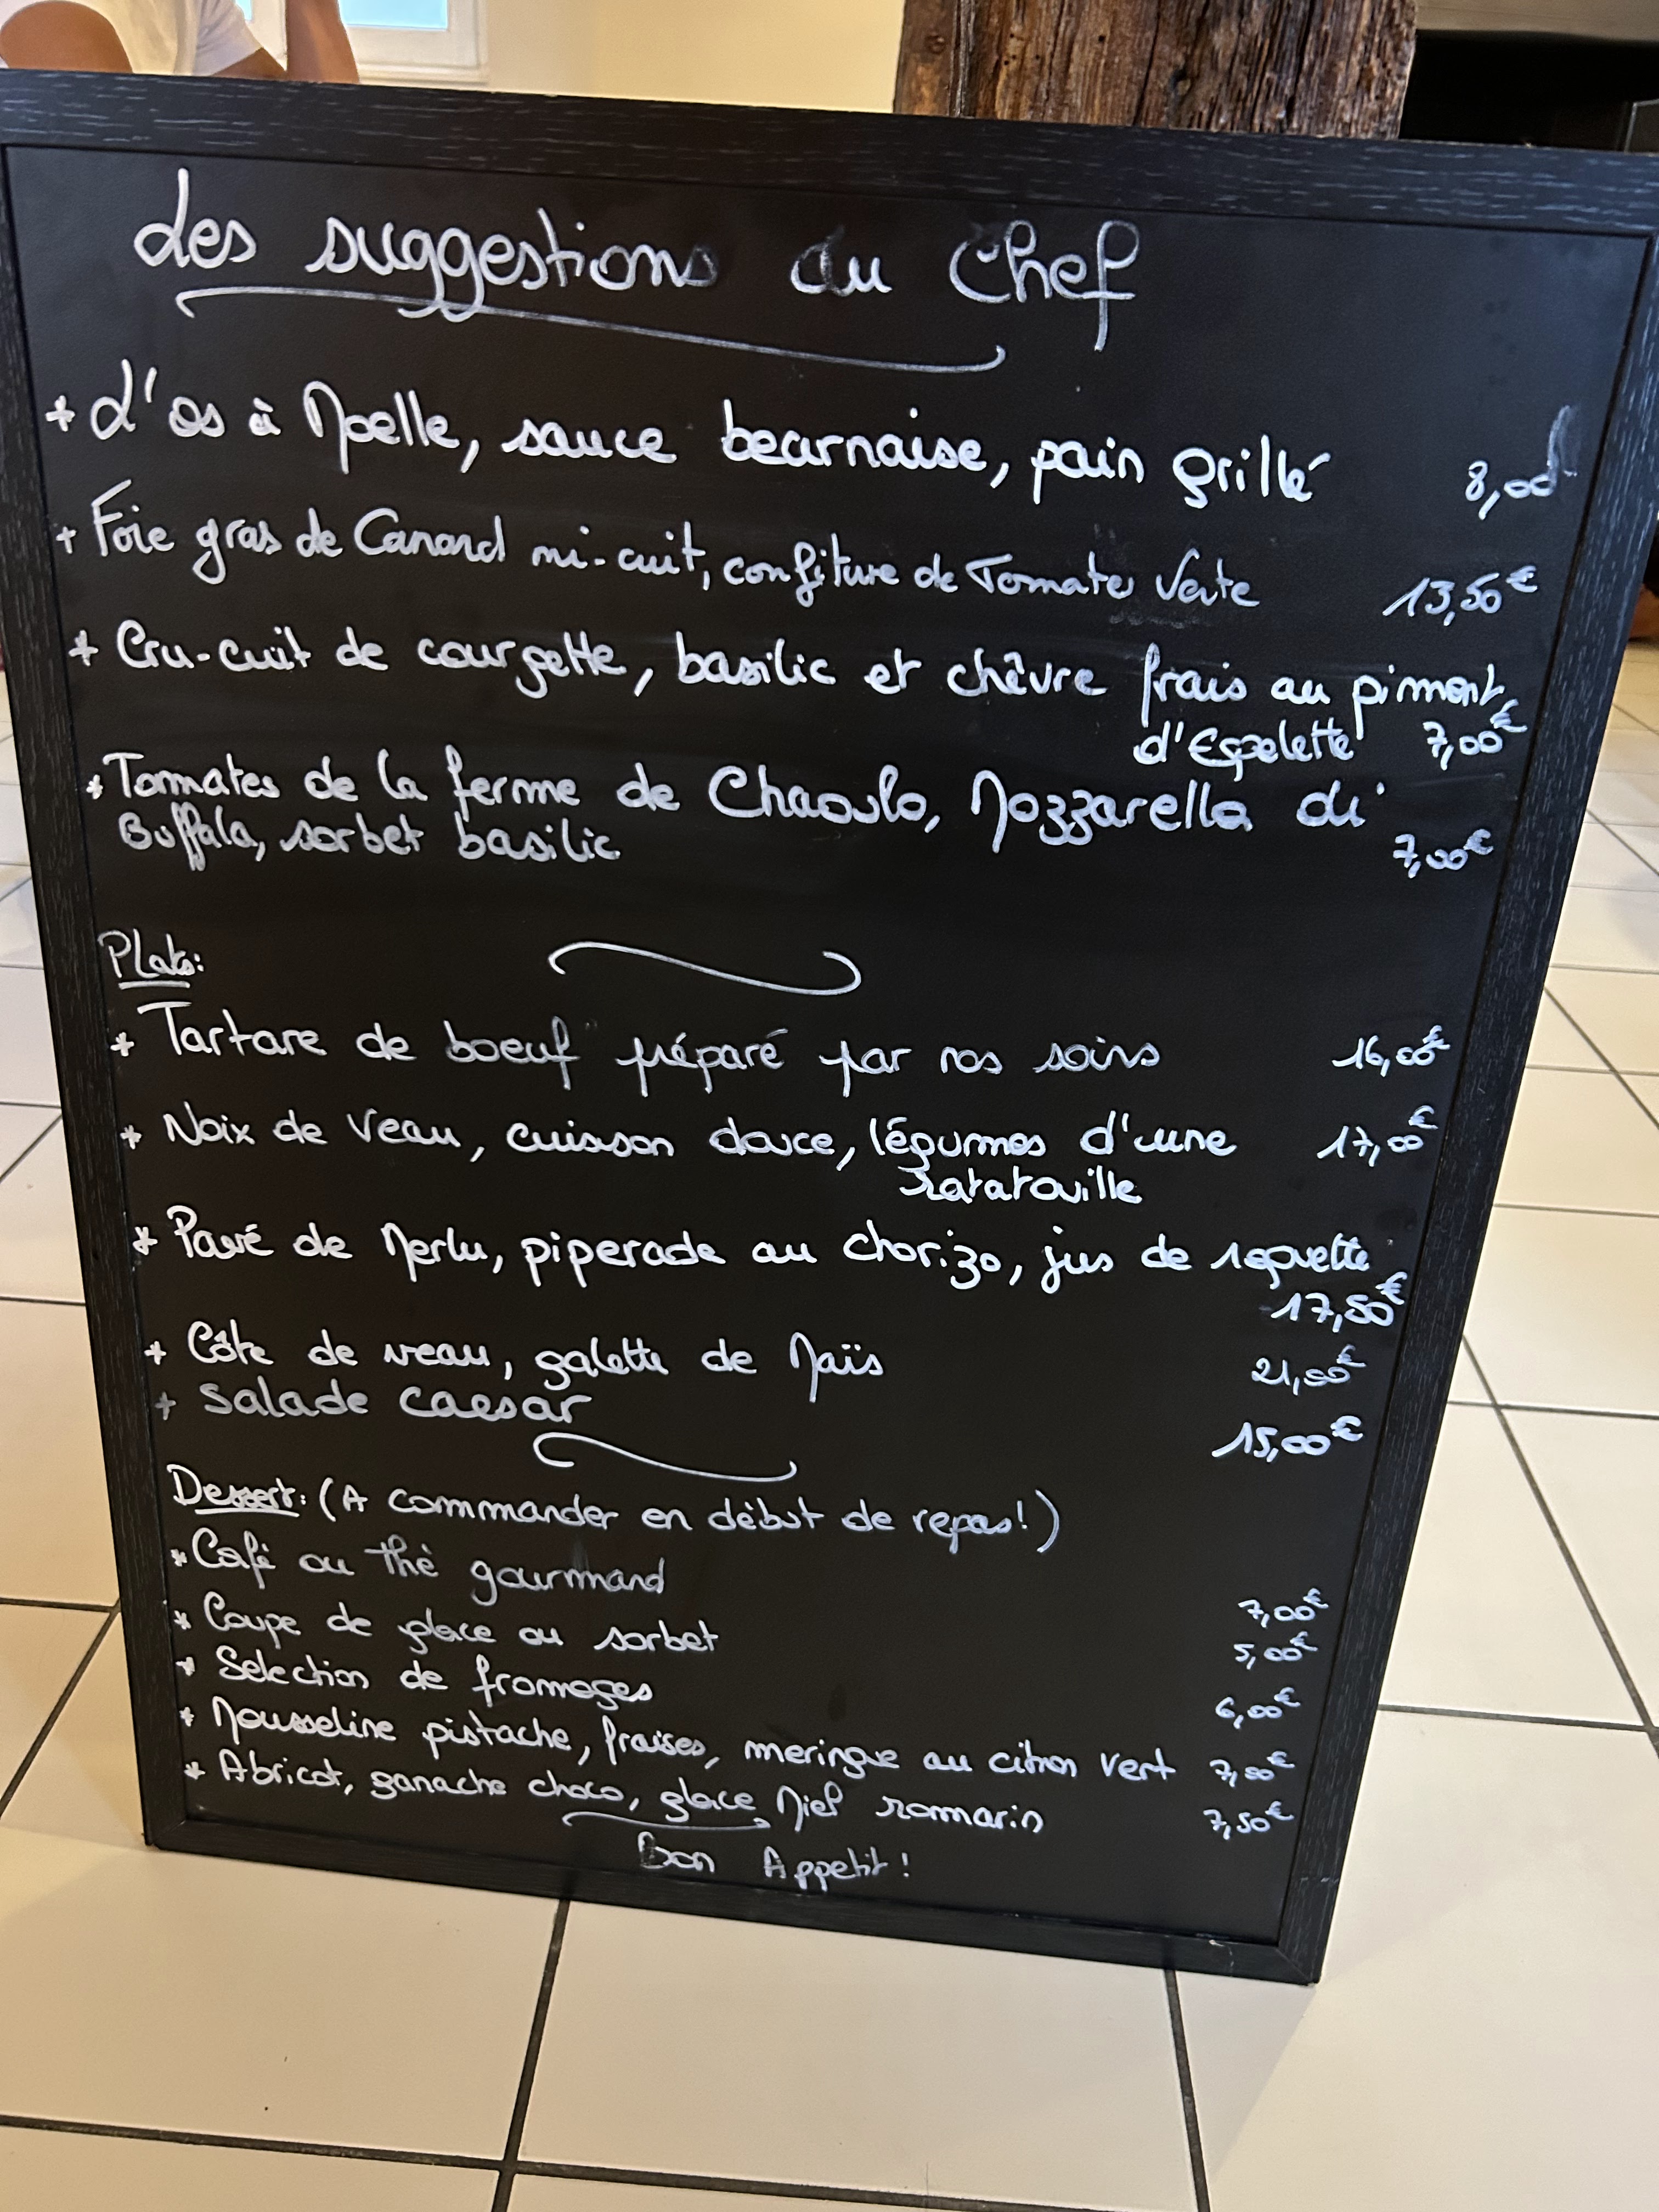 Les suggestions du Chef
* L'os à Moelle, sauce bearnaise, pain grillé 8,00€
+ Foie gras de Canard mi-cuit, confiture de Tomates Verte 13,50€
+ Cru-cuit de courgette, basilic et chèvre frais au piment
d'Espelette 7,00€
* Tomates de la ferme de Chaoulo, Mozzarella di
Buffala, sorbet basilic 7,00€
Plats:
* Tartare de boeuf préparé par nos soins 16,00€
* Noix de Veau, cuisson douce, légumes d'une 17,00€
ratatouille
* Pavé de Merlu, piperade au chorizo, jus de roquette
17,50€
* Côte de veau, galette de Maïs 21,00€
+ Salade caesar 15,00€
Dessert: (A commander en début de repas!)
* Café ou thé gourmand 7,00€
* Coupe de glace ou sorbet 5,00€
* Selection de fromages 6,00€
* Mousseline pistache, fraises, meringue au citron vert 7,50€
* Abricot, ganache choco, glace Miel romarin 7,50€
Bon Appetit!